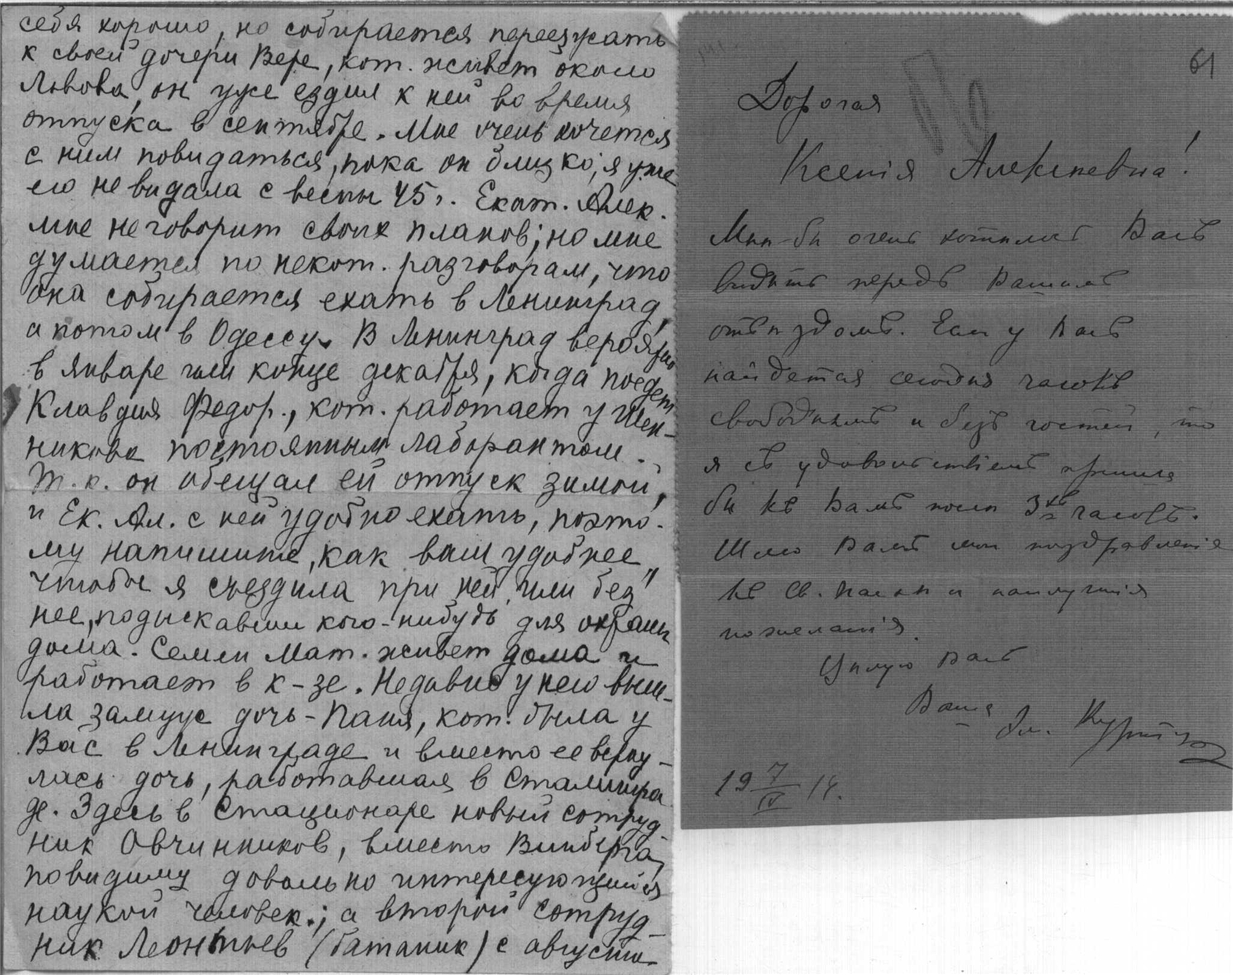 себя хорошо, но собирается переезжать
к своей дочери Вере, кот. живет около
Львова, он уже ездил к ней во время
отпуска в сентябре. Мне очень хочется
с ним повидаться, пока он близко, я уже
его не видала с весны 45 г. Екат. Алек.
мне не говорит своих планов; но мне
думается по некот. разговорам, что
она собирается ехать в Ленинград,
а потом в Одессу. В Ленинград вероятно
в январе или конце декабря, когда поедет
Клавдия Федор., кот. работает у Шен-
никова постоянным лаборантом.
Т.к. он обещал ей отпуск зимой,
и Ек. Ал. с ней удобно ехать, поэто-
му напишите, как вам удобнее,
чтобы я съездила при ней, или без
нее, подыскавши кого-нибудь для охраны
дома. Семен Мат. живет дома и
работает в к-зе. Недавно у него выш-
ла замуж дочь - Паня, кот. была у
Вас в Ленинграде и вместо ее верну-
лась дочь, работавшая в Сталингра
де. Здесь в Стационаре новый сотруд-
ник Овчинников, вместо Винберга,
повидиму довольно интересующийся
наукой человек.; а второй сотруд-
ник Леонтьев (ботаник) с августа
61
Дорогая
Ксенія Алексѣевна!
Мнѣ бы очень хотѣлось Васъ
видѣть передъ Вашимъ
отъѣздомъ. Если у Васъ
найдется сегодня часокъ
свободнымъ и безъ гостей, то
я съ удовольствіемъ пришла
бы къ Вамъ послѣ 3хъ часовъ.
Шлю Вамъ мои поздравленія
къ Св. Пасхѣ и наилучшія
пожеланія.
Цѣлую Васъ
Ваша
19 7/IV 14.